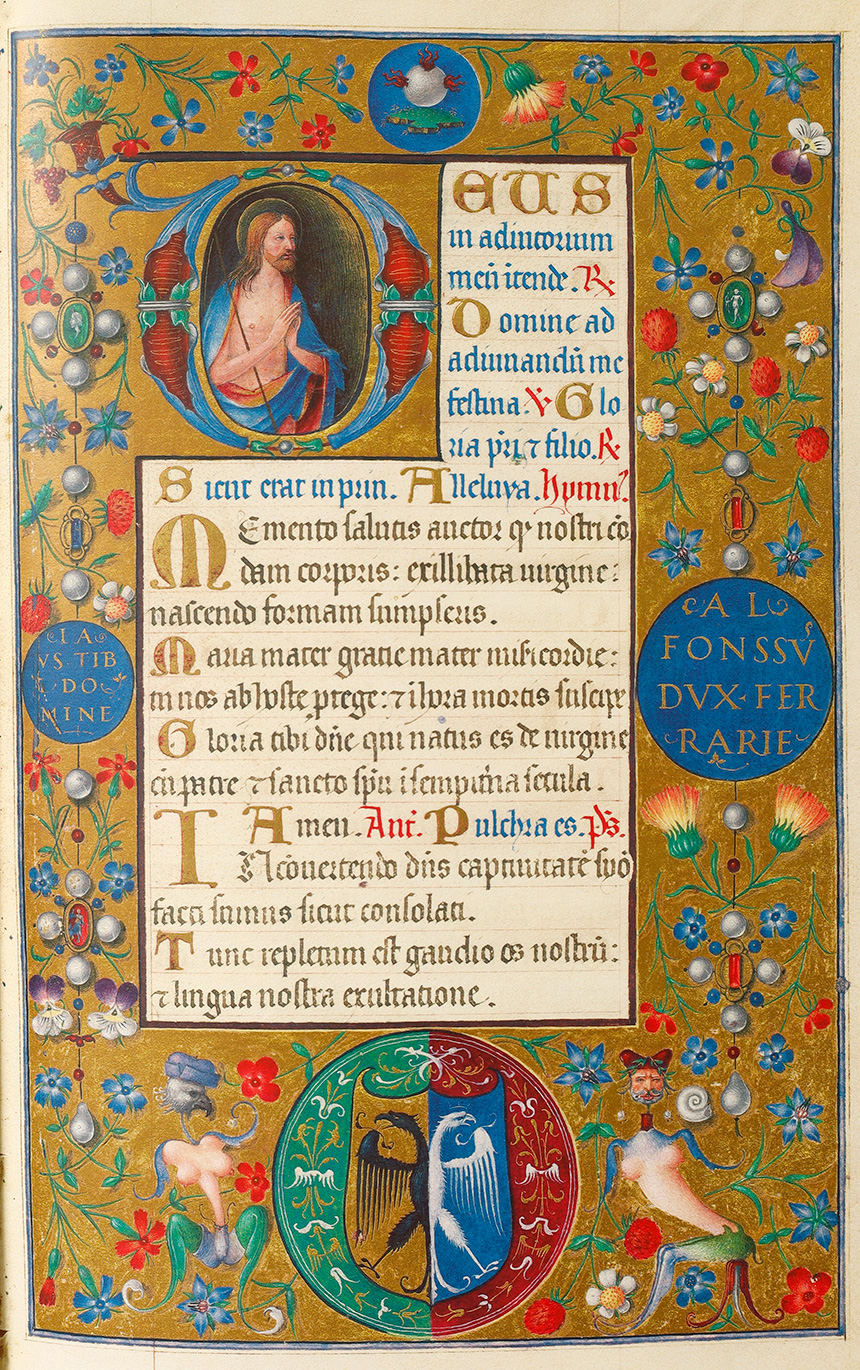 DEUS
in adiutorium
meū ītende. ℟
Domine ad
adiuuandū me
festina. ℣ Glo
ria pr̄i ⁊ filio. ℟
Sicut erat in prin. Alleluya. Hymn᾽.
Memento salutis auctor qꝫ nostri cō
dam corporis: exillibata uirgine:
nascendo formam sumpseris.
Maria mater gratie mater misericordie:
tu nos ab hoste ꝓtege: ⁊ ī hora mortis suscipe
Gloria tibi dn̄e qui natus es de uirgine
cū patre ⁊ sancto spū ī sempit̄na secula.
Amen. Ant. Pulchra es. ps.
IN cōuertendo dn̄s captiuitatē syō
facti sumus sicut consolati.
Tunc repletum est gaudio os nostrū:
⁊ lingua nostra exultatione.
LA
VS TIB
I DO
MINE
AL
FONSSVS
DVX·FER
RARIE